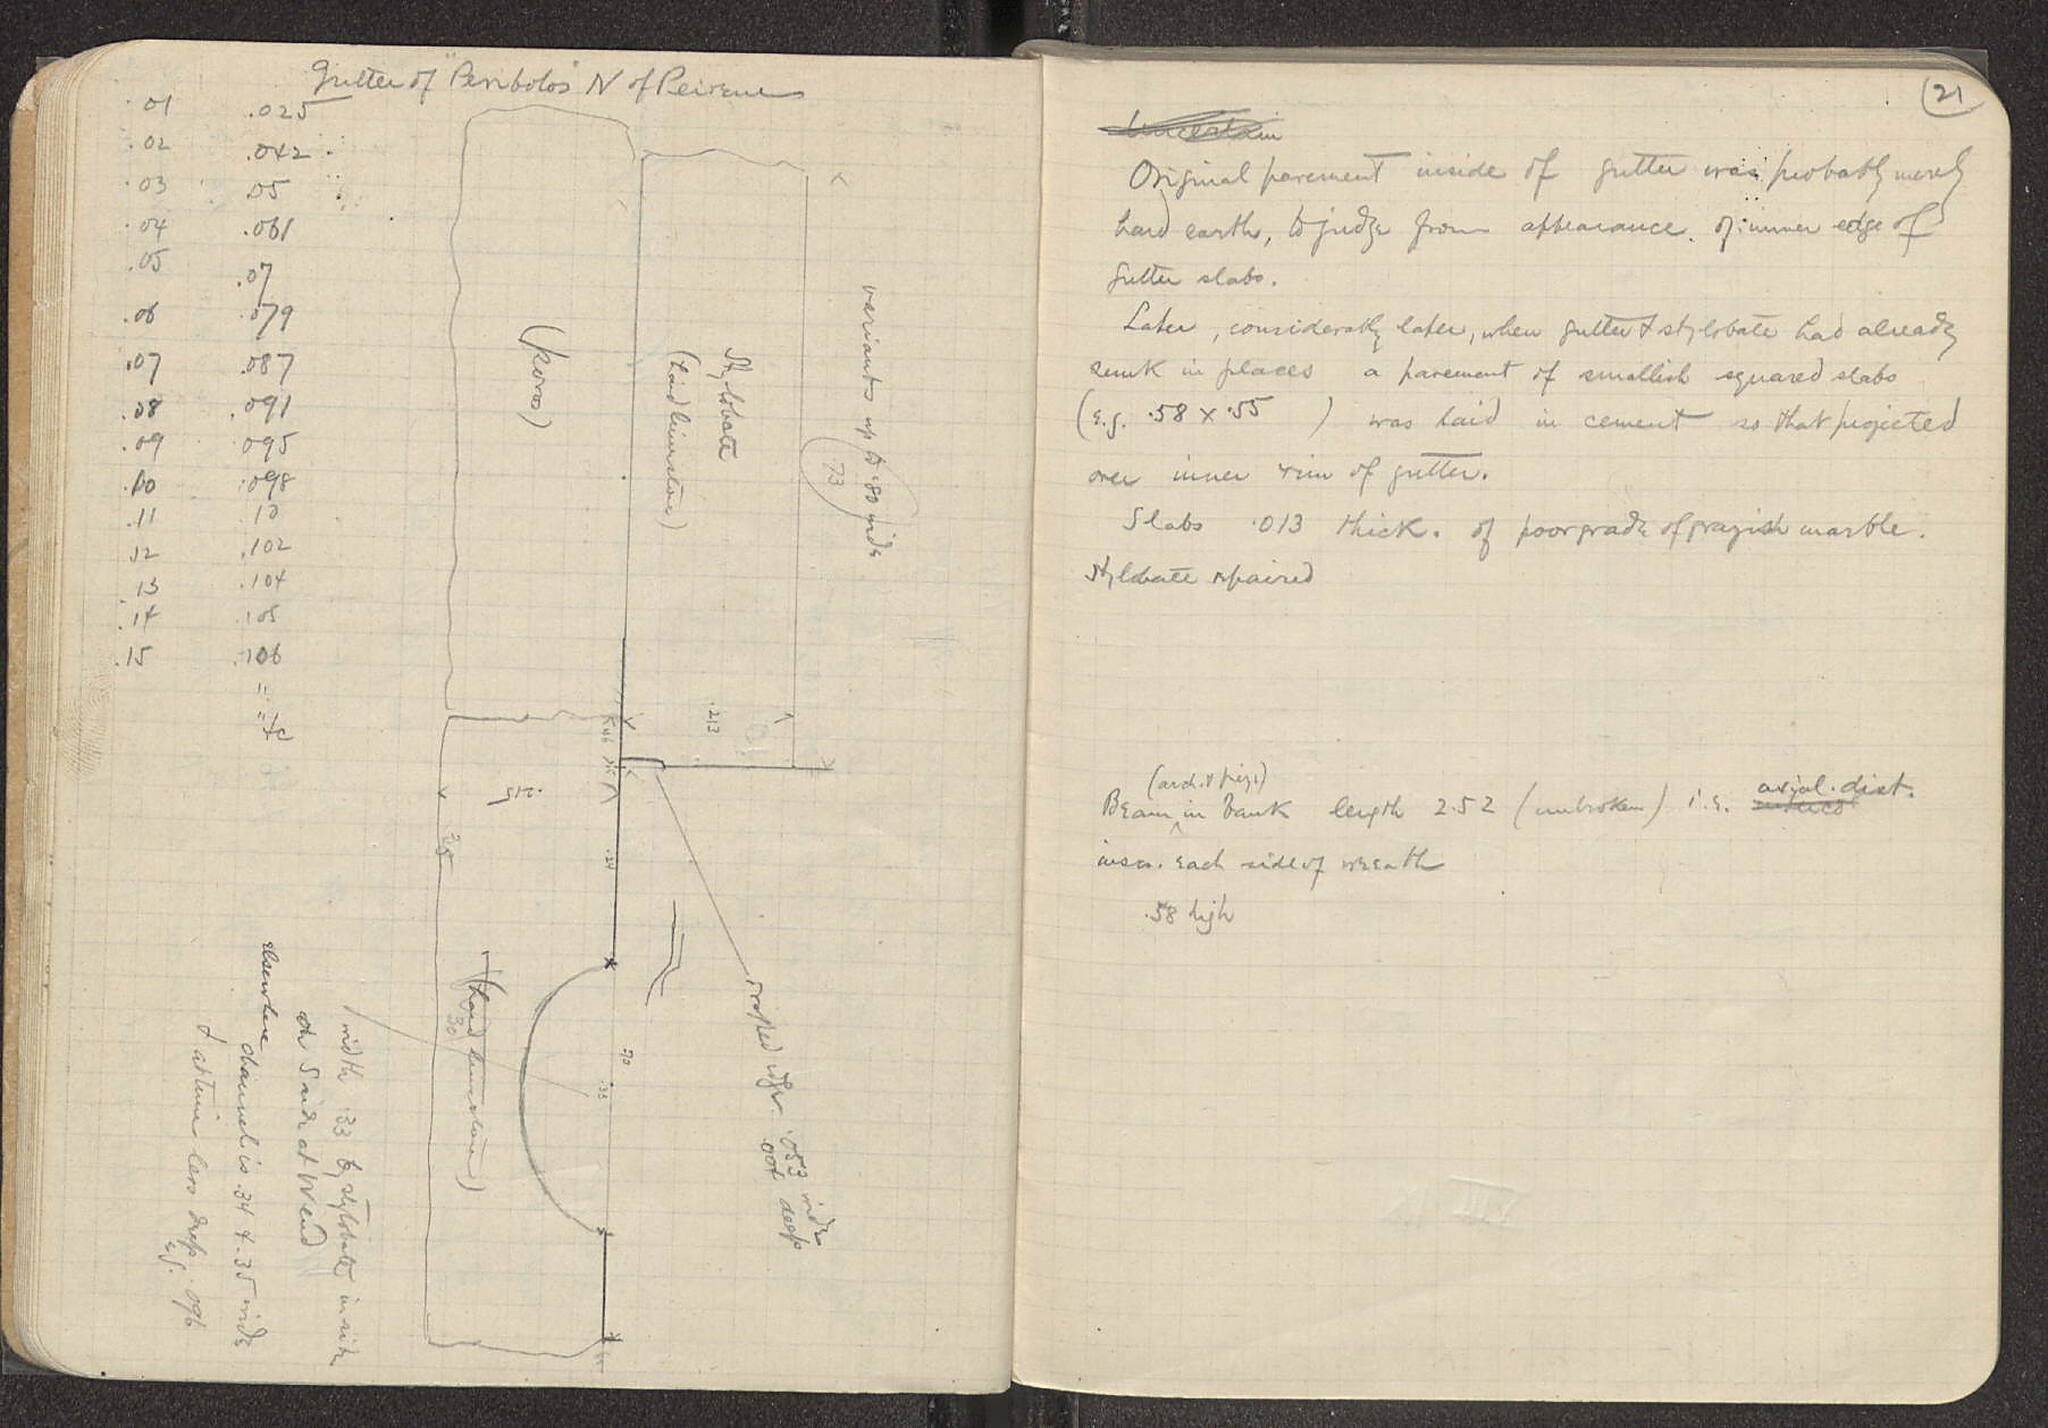 Gutter of "Peribolos" N of Peirene
.01 .025
.02 .042
.03 .05
.04 .061
.05 .07
.06 .079
.07 .087
.08 .091
.09 .095
.10 .098
.11 .10
.12 .102
.13 .104
.14 .105
.15 .106
etc
(poros)
Stylobate
(hard limestone)
variants up to .80 wide
.73
.213
.215
.35
.24
.70
.33
(hard limestone)
.30
cross edge .053 wide
.007 deep
width .33 by stylobate in situ
on S side at W end
elsewhere channel is .34 & .35 wide
& at time less deep e.g. .096
21
Uncertain
Original pavement inside of gutter was probably merely
hard earth, to judge from appearance of inner edge of
gutter slabs.
Later, considerably later, when gutter & stylobate had already
sunk in places a pavement of smallish squared slabs
(e.g. .58 x .55 ) was laid in cement so that projected
over inner rim of gutter.
Slabs .013 thick. of poor grade of grayish marble.
Stylobate repaired
(arch. & frieze)
Beam in bank length 2.52 (unbroken) i.e. axial dist.
inscr. each side of wreath
.58 high